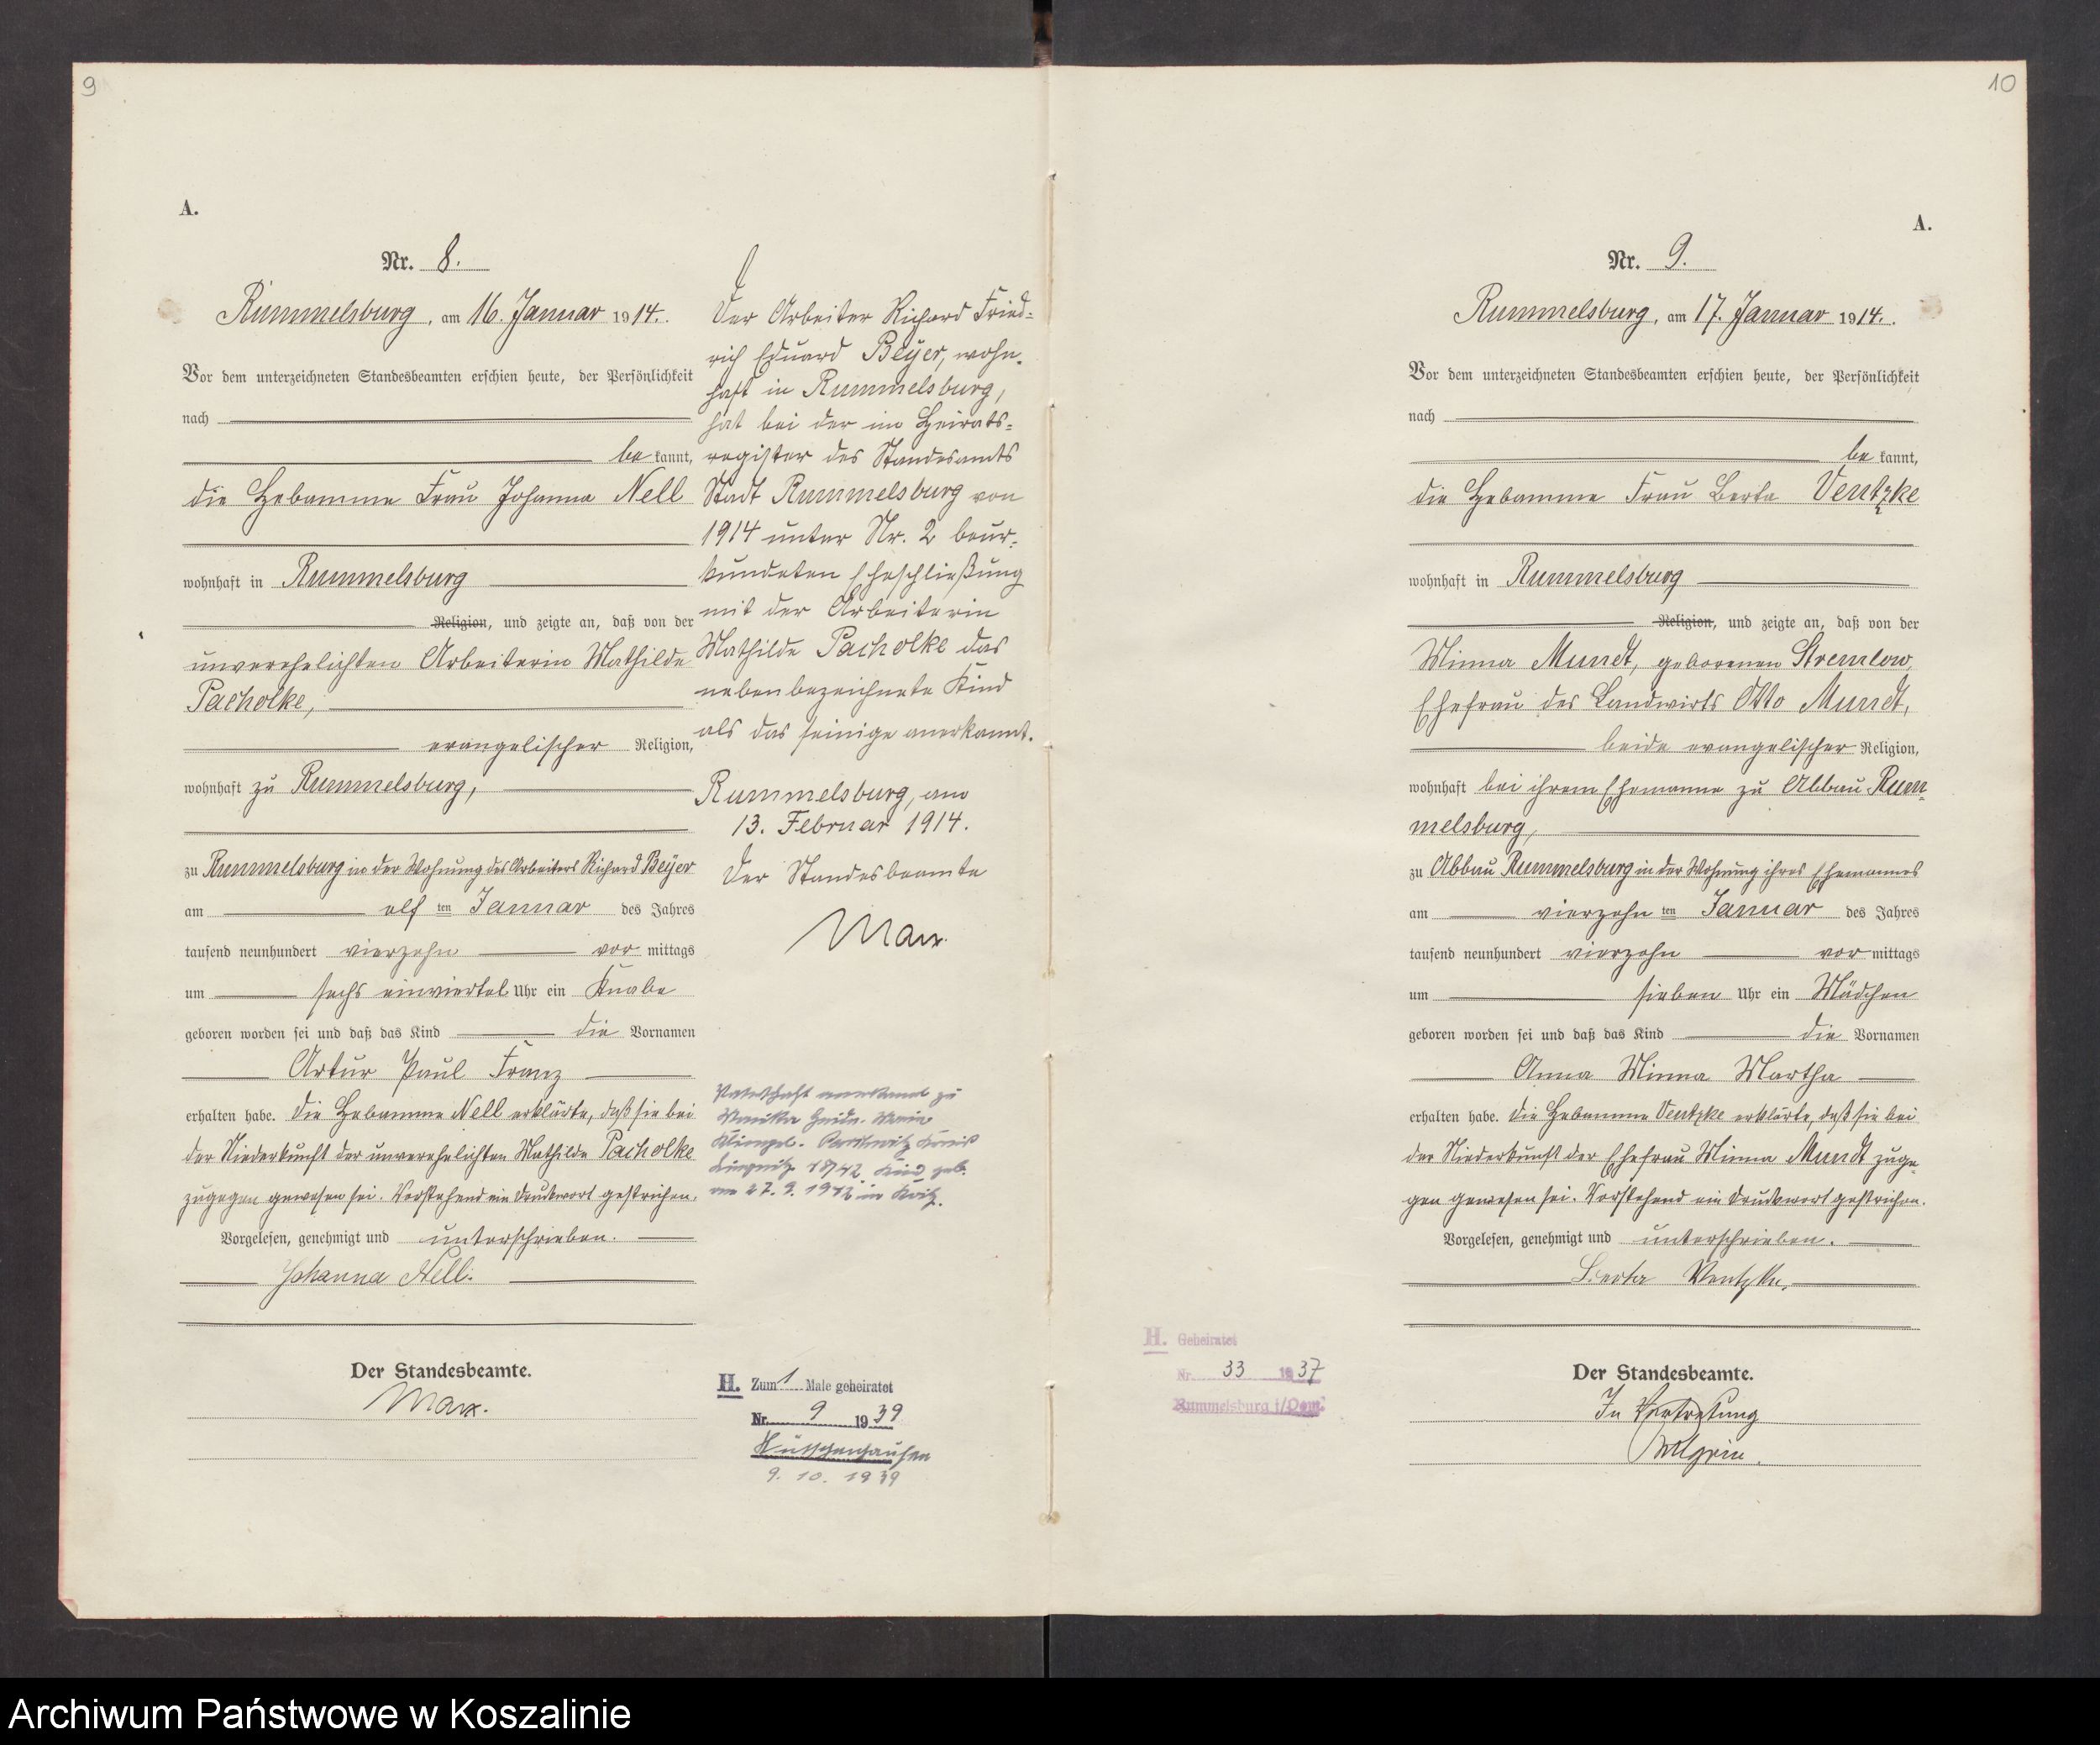 9
A.
Nr. 8.
Rummelsburg, am 16. Januar 1914.
Vor dem unterzeichneten Standesbeamten erschien heute, der Persönlichkeit
nach
be kannt,
die Hebamme Frau Johanna Nell
wohnhaft in Rummelsburg
Religion, und zeigte an, daß von der
unverehelichten Arbeiterin Mathilde
Pacholke,
evangelischer Religion,
wohnhaft zu Rummelsburg,
zu Rummelsburg in der Wohnung des Arbeiters Richard Beyer
am elf ten Januar des Jahres
tausend neunhundert vierzehn vor mittags
um sechs einviertel Uhr ein Knabe
geboren worden sei und daß das Kind die Vornamen
Artur Paul Franz
erhalten habe. Die Hebamme Nell erklärte, daß sie bei
der Niederkunft der unverehelichten Mathilde Pacholke
zugegen gewesen sei. Vorstehend ein Druckwort gestrichen.
Vorgelesen, genehmigt und unterschrieben.
Johanna Nell.
Der Standesbeamte.
Marx.
Der Arbeiter Richard Fried-
rich Eduard Beyer, wohn-
haft in Rummelsburg,
hat bei der im Heirats-
register des Standesamts
Stadt Rummelsburg von
1914 unter Nr. 2 beur-
kundeten Eheschließung
mit der Arbeiterin
Mathilde Pacholke das
nebenbezeichnete Kind
als das seinige anerkannt.
Rummelsburg, am
13. Februar 1914.
Der Standesbeamte
Marx.
Vaterschaft anerkannt zu
Kreis
Liegnitz 18/42 Kind geb.
am 27. 9. 1942 in
H. Zum 1 Male geheiratet
Nr. 9 1939
9. 10. 1939
10
A.
Nr. 9.
Rummelsburg, am 17. Januar 1914.
Vor dem unterzeichneten Standesbeamten erschien heute, der Persönlichkeit
nach
be kannt,
die Hebamme Frau Berta Ventzke
wohnhaft in Rummelsburg
Religion, und zeigte an, daß von der
Minna Mundt, geborenen Stremlow,
Ehefrau des Landwirts Otto Mundt,
beide evangelischer Religion,
wohnhaft bei ihrem Ehemanne zu Abbau Rum-
melsburg,
zu Abbau Rummelsburg in der Wohnung ihres Ehemannes
am vierzehn ten Januar des Jahres
tausend neunhundert vierzehn vor mittags
um sieben Uhr ein Mädchen
geboren worden sei und daß das Kind die Vornamen
Anna Minna Martha
erhalten habe. Die Hebamme Ventzke erklärte, daß sie bei
der Niederkunft der Ehefrau Minna Mundt zuge-
gen gewesen sei. Vorstehend ein Druckwort gestrichen.
Vorgelesen, genehmigt und unterschrieben.
Berta Ventzke.
Der Standesbeamte.
In Vertretung
H. Geheiratet
Nr. 33 1937
Rummelsburg i/Pom.
Archiwum Państwowe w Koszalinie